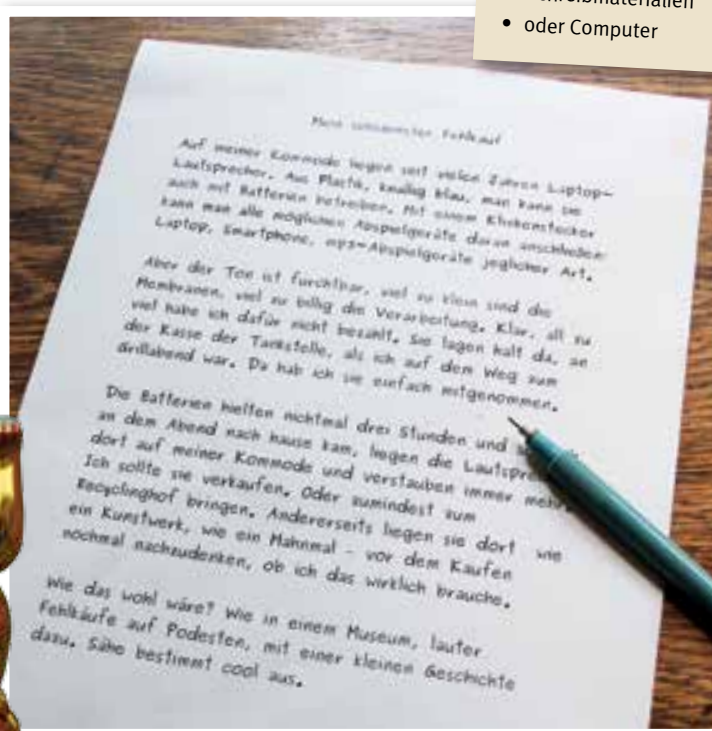 oder Computer
Mein schlimmster Fehlkauf
Auf meiner Kommode liegen seit vielen Jahren Laptop-
Lautsprecher. Aus Plastik, knallig blau, man kann sie
auch mit Batterien betreiben. Mit einem Klinkenstecker
kann man alle möglichen Abspielgeräte daran anschließen:
Laptop, Smartphone, mp3-Abspielgeräte jeglicher Art.
Aber der Ton ist furchtbar, viel zu klein sind die
Membranen, viel zu billig die Verarbeitung. Klar, all zu
viel habe ich dafür nicht bezahlt. Sie lagen halt da, an
der Kasse der Tankstelle, als ich auf dem Weg zum
Grillabend war. Da hab ich sie einfach mitgenommen.
Die Batterien hielten nichtmal drei Stunden und
an dem Abend nach hause kam, liegen die Lautspre
dort auf meiner Kommode und verstauben immer mehr.
Ich sollte sie verkaufen. Oder zumindest zum
Recyclinghof bringen. Andererseits liegen sie dort wie
ein Kunstwerk, wie ein Mahnmal - vor dem Kaufen
nochmal nachzudenken, ob ich das wirklich brauche.
Wie das wohl wäre? Wie in einem Museum, lauter
Fehlkäufe auf Podesten, mit einer kleinen Geschichte
dazu. Sähe bestimmt cool aus.